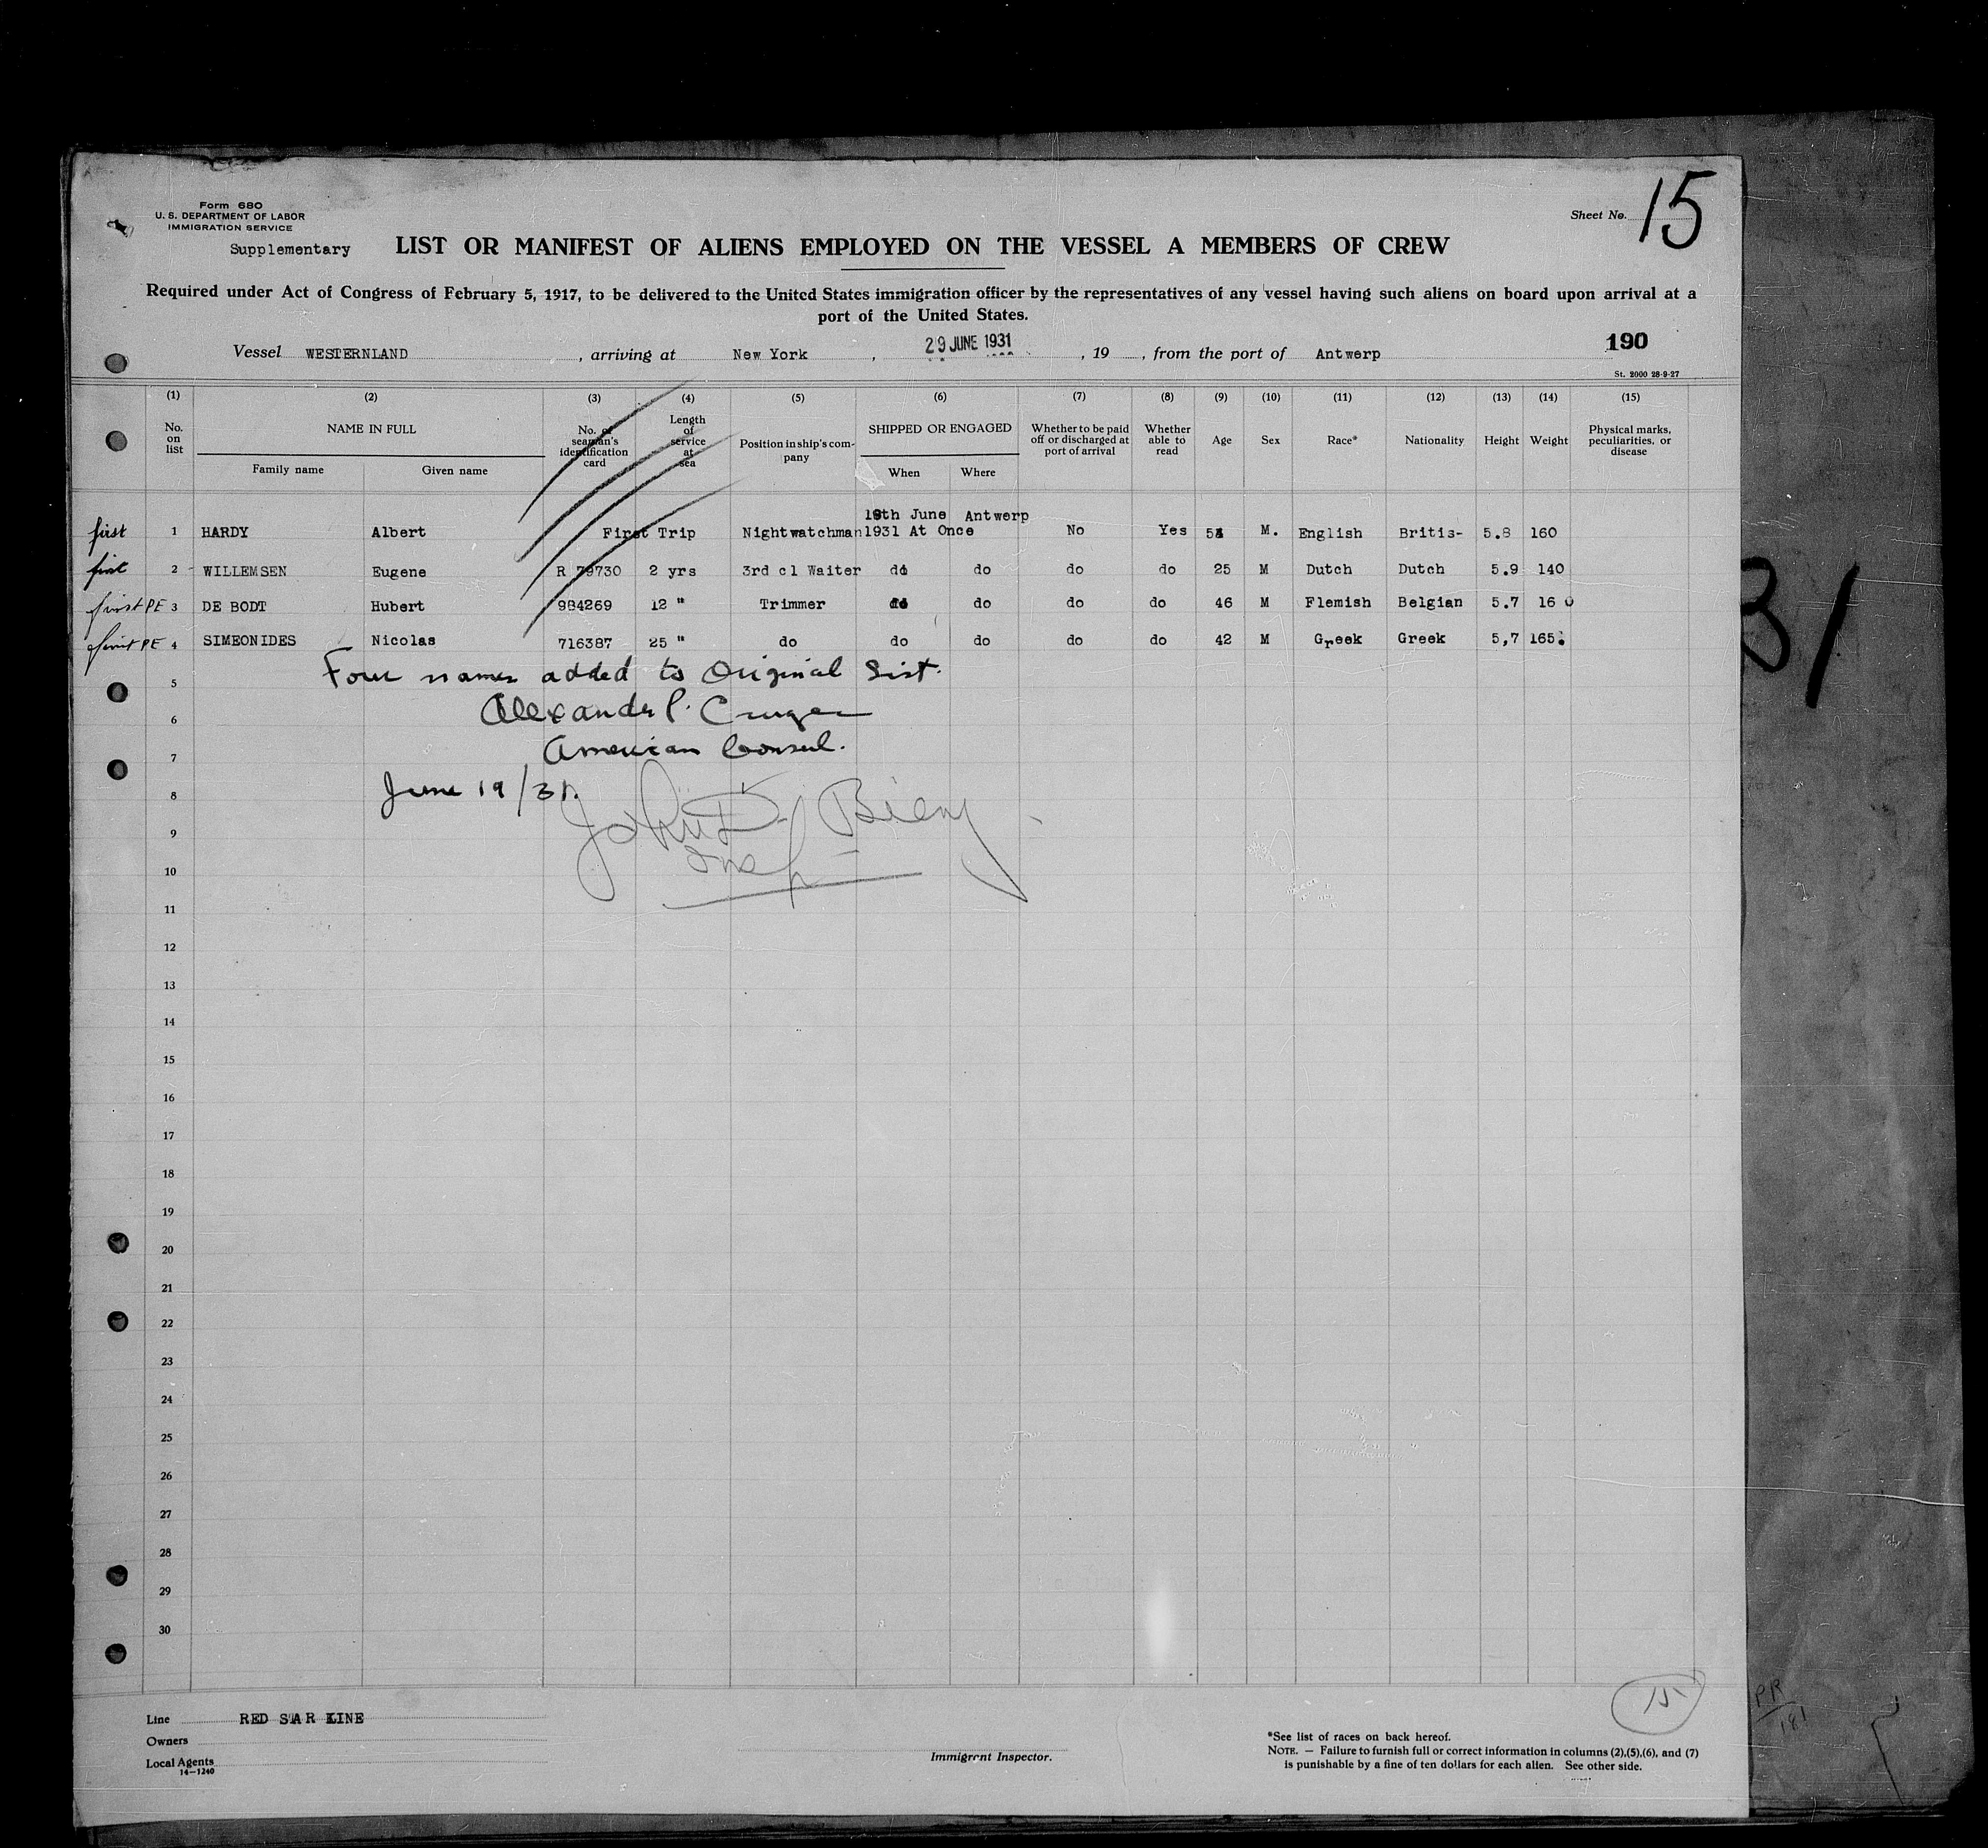 Form 680
U. S. DEPARTMENT OF LABOR
IMMIGRATION SERVICE
Supplementary
Sheet No. 15
LIST OR MANIFEST OF ALIENS EMPLOYED ON THE VESSEL A MEMBERS OF CREW
Required under Act of Congress of February 5, 1917, to be delivered to the United States immigration officer by the representatives of any vessel having such aliens on board upon arrival at a
port of the United States.
Vessel WESTERNLAND, arriving at New York, 29 JUNE 1931, 19, from the port of Antwerp
190
St. 2000 28-9-27
(1) (2) (3) (4) (5) (6) (7) (8) (9) (10) (11) (12) (13) (14) (15)
No. on list
NAME IN FULL
Family name Given name
No. of seaman's identification card
Length of service at sea
Position in ship's company
SHIPPED OR ENGAGED
When Where
Whether to be paid off or discharged at port of arrival
Whether able to read
Age
Sex
Race*
Nationality
Height
Weight
Physical marks, peculiarities, or disease
18th June Antwerp
first 1 HARDY Albert First Trip Nightwatchman 1931 At Once No Yes M. English Britis- 5.8 160
first 2 WILLEMSEN Eugene R 79730 2 yrs 3rd cl Waiter do do do do 25 M Dutch Dutch 5.9 140
first PE 3 DE BODT Hubert 984269 12 " Trimmer do do do do 46 M Flemish Belgian 5.7 160
first PE 4 SIMEONIDES Nicolas 716387 25 " do do do do do 42 M Greek Greek 5,7 165.
Four names added to Original List.
5
Alexander P. Cruger
6
American Consul.
7
June 19/31.
8
John D. Bieny
9
Insp
10
11
12
13
14
15
16
17
18
19
20
21
22
23
24
25
26
27
28
29
30
15
Line RED STAR LINE
Owners
Local Agents
14-1240
Immigrant Inspector.
*See list of races on back hereof.
NOTE. — Failure to furnish full or correct information in columns (2),(5),(6), and (7)
is punishable by a fine of ten dollars for each alien. See other side.
31
PR
181